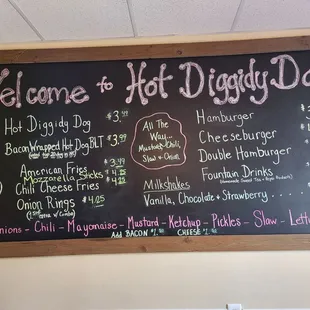 Welcome to Hot Diggidy Do
Hot Diggidy Dog
Bacon Wrapped Hot Dog BLT $3.99
American Fries $3.49
Mozzarella Sticks $4.25
Chili Cheese Fries $4.25
Onion Rings $4.25
All The
Way...
Mustard, Chili,
Slaw & Onion
Milkshakes
Vanilla, Chocolate & Strawberry
Hamburger
Cheeseburger
Double Hamburger
Fountain Drinks
nions - Chili - Mayonnaise - Mustard - Ketchup - Pickles - Slaw - Lett
Add BACON CHEESE